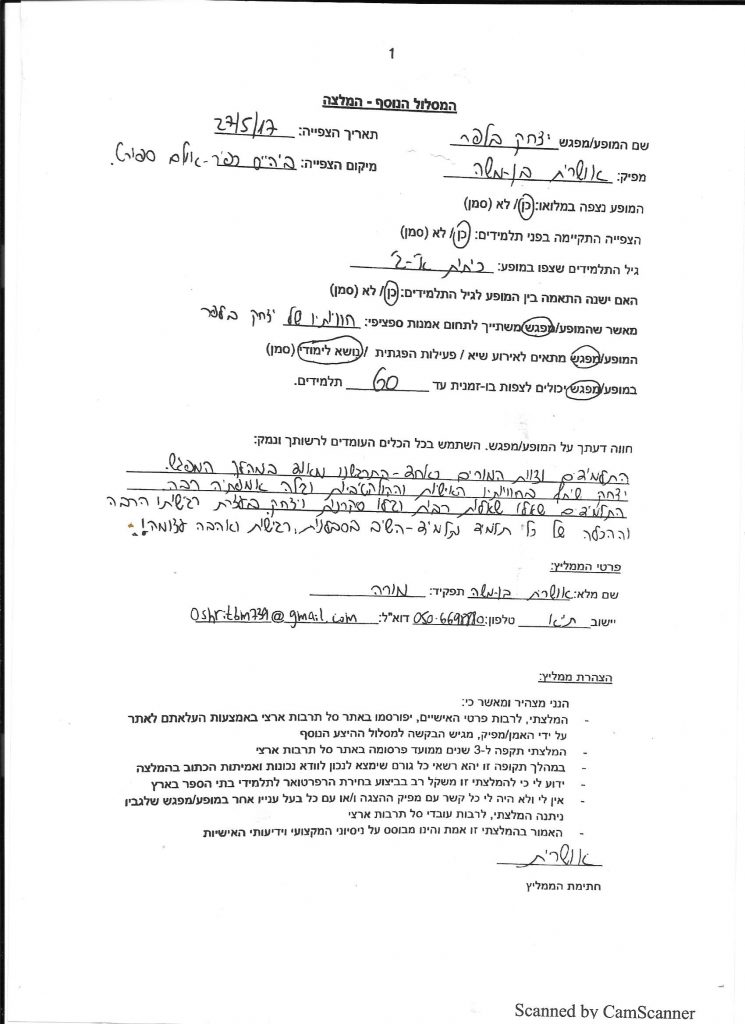 1
המסלול הנוסף - המלצה
שם המופע/מפגש יצחק בלפר תאריך הצפייה: 27/5/17
מפיק: אושרית בן-משה מיקום הצפייה: ביה"ס - אולם ספורט.
המופע נצפה במלואו: כן/ לא (סמן)
הצפייה התקיימה בפני תלמידים: כן/ לא (סמן)
גיל התלמידים שצפו במופע: כיתות א'-ב'
האם ישנה התאמה בין המופע לגיל התלמידים: כן/ לא (סמן)
מאשר שהמופע/מפגש משתייך לתחום אמנות ספציפי: חוויותיו של יצחק בלפר
המופע/מפגש מתאים לאירוע שיא / פעילות הפגתית / נושא לימודי (סמן)
במופע/מפגש יכולים לצפות בו-זמנית עד 60 תלמידים.
חווה דעתך על המופע/מפגש. השתמש בכל הכלים העומדים לרשותך ונמק:
התלמידים וצוות המורים כאחד - התרגשנו מאוד במהלך המפגש.
יצחק שיתף בחוויותיו האישיות והקולקטיביות וגילה אמפתיה רבה.
התלמידים שאלו שאלות רבות וגילו סקרנות ויצחק בעזרת רגישותו הרבה
וההכלה של כל תלמיד ותלמיד - השיב בסבלנות, רגישות ואהבה עצומה!
פרטי הממליץ:
שם מלא: אושרית בן-משה תפקיד: מורה
יישוב ת"א טלפון: דוא"ל: Oshritbm739@gmail.com
הצהרת ממליץ:
הנני מצהיר ומאשר כי:
- המלצתי, לרבות פרטי האישיים, יפורסמו באתר סל תרבות ארצי באמצעות העלאתם לאתר
על ידי האמן/מפיק, מגיש הבקשה למסלול ההיצע הנוסף
- המלצתי תקפה ל-3 שנים ממועד פרסומה באתר סל תרבות ארצי
- במהלך תקופה זו יהא רשאי כל גורם שימצא לנכון לוודא נכונות ואמיתות הכתוב בהמלצה
- ידוע לי כי להמלצתי זו משקל רב בביצוע בחירת הרפרטואר לתלמידי בתי הספר בארץ
- אין לי ולא היה לי כל קשר עם מפיק ההצגה ו/או עם כל בעל עניין אחר במופע/מפגש שלגביו
ניתנה המלצתי, לרבות עובדי סל תרבות ארצי
- האמור בהמלצתי זו אמת והינו מבוסס על ניסיוני המקצועי וידיעותי האישיות
אושרית
חתימת הממליץ
Scanned by CamScanner